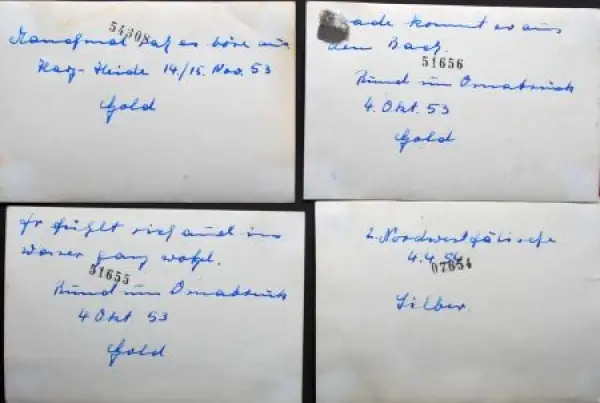 54308
Manchmal sah es böse aus
Harz-Heide 14./15. Nov. 53
Gold
rade kommt er aus
dem Bach.
51656
Rund um Osnabrück
4. Okt. 53
Gold
Er fühlt sich auch im
Wasser ganz wohl.
51655
Rund um Osnabrück
4 Okt 53
Gold
2. Nordwestfälische
4.4.54
07654
Silber